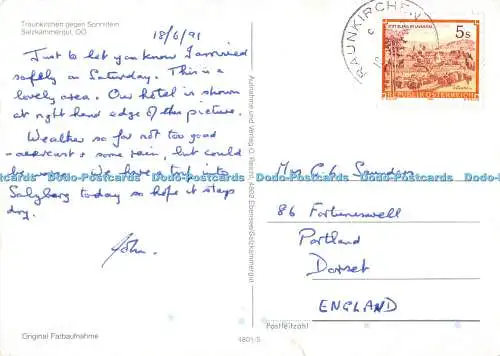 Traunkirchen gegen Sonnstein
Salzkammergut, OÖ
18/6/91
Just to let you know I arrived
safely on Saturday. This is a
lovely area. Our hotel is shown
at right hand edge of this picture.
Weather so far not too good
- overcast & some rain, but could
be worse. We have a trip into
Salzburg today so hope it stays
dry.
John.
Original Farbaufnahme
Aufnahme und Verlag
4802 Ebensee/Salzkammergut
1801/5
RAUNKIRCHEN
5s
REPUBLIK ÖSTERREICH
Mrs
Saunders
86 Fortuneswell
Portland
Dorset
ENGLAND
Postleitzahl
Dodo-Postcards Dodo-Postcards Dodo-Postcards Dodo-Postcards Dodo-Postcards